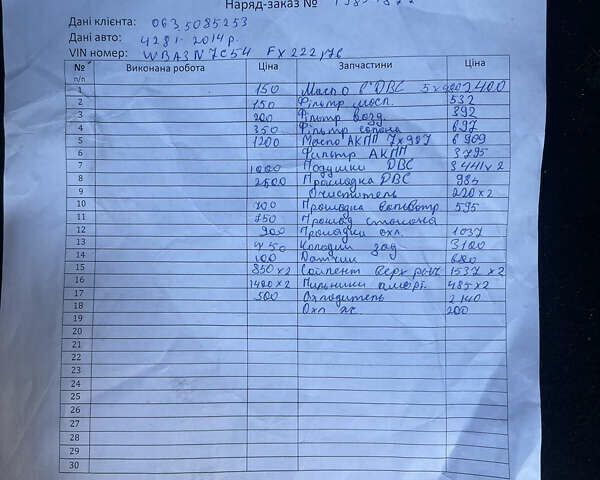 Наряд-заказ №
Дані клієнта: 0635085253
Дані авто: 428i 2014р.
VIN номер: WBA3N7C54 FX222
№ п/п Виконана робота Ціна Запчастини Ціна
1 150 Масло ДВС 2400
2 150 Фільтр масл. 532
3 200 Фільтр возд. 892
4 350 Фільтр салона 697
5 1200 Масло АКПП 7х987 6 909
6 Фильтр АКПП 3 795
7 1000 Подушки ДВС 3 441 х 2
8 2500 Прокладка ДВС 984
9 Очиститель 220 х 2
10 700 Прокладка 595
11 750
12 900 Прокладки охл. 1037
13 450 Колодки зад 3100
14 100 Датчик 680
15 850 х 2 Сайлент верх 1537 х 2
16 1400 х 2 Пильники 485 х 2
17 500 Охладитель 2 140
18 Охл 200
19
20
21
22
23
24
25
26
27
28
29
30